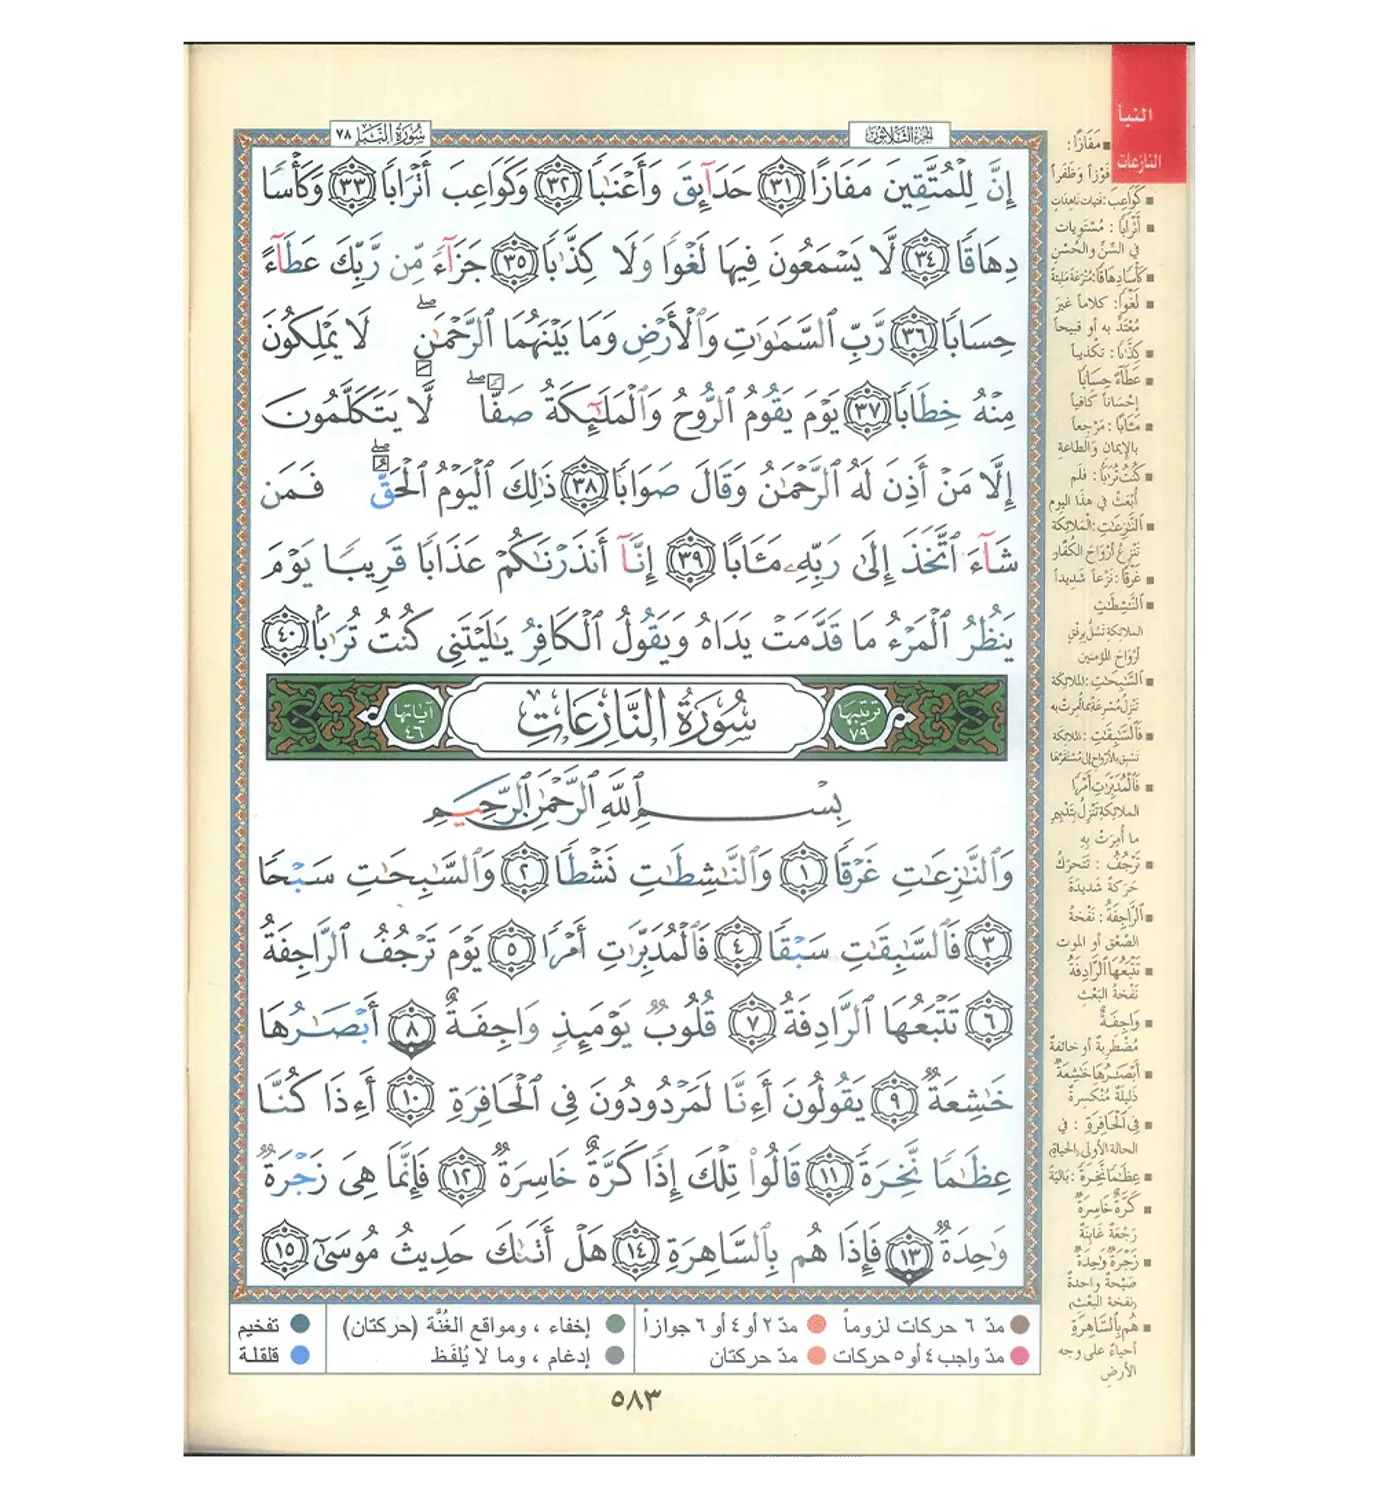 النبأ
النازعات
سُورَةُ النَّبَإِ ٧٨
الجُزءُ الثَّلَاثُونَ
إِنَّ لِلْمُتَّقِينَ مَفَازًا ٣١ حَدَآئِقَ وَأَعْنَٰبًا ٣٢ وَكَوَاعِبَ أَتْرَابًا ٣٣ وَكَأْسًا
دِهَاقًا ٣٤ لَّا يَسْمَعُونَ فِيهَا لَغْوًا وَلَا كِذَّٰبًا ٣٥ جَزَآءً مِّن رَّبِّكَ عَطَآءً
حِسَابًا ٣٦ رَّبِّ ٱلسَّمَٰوَٰتِ وَٱلْأَرْضِ وَمَا بَيْنَهُمَا ٱلرَّحْمَٰنِ ۖ لَا يَمْلِكُونَ
مِنْهُ خِطَابًا ٣٧ يَوْمَ يَقُومُ ٱلرُّوحُ وَٱلْمَلَٰٓئِكَةُ صَفًّا ۖ لَّا يَتَكَلَّمُونَ
إِلَّا مَنْ أَذِنَ لَهُ ٱلرَّحْمَٰنُ وَقَالَ صَوَابًا ٣٨ ذَٰلِكَ ٱلْيَوْمُ ٱلْحَقُّ ۖ فَمَن
شَآءَ ٱتَّخَذَ إِلَىٰ رَبِّهِۦ مَـَٔابًا ٣٩ إِنَّآ أَنذَرْنَٰكُمْ عَذَابًا قَرِيبًا يَوْمَ
يَنظُرُ ٱلْمَرْءُ مَا قَدَّمَتْ يَدَاهُ وَيَقُولُ ٱلْكَافِرُ يَٰلَيْتَنِى كُنتُ تُرَٰبًۢا ٤٠
ترتيبها ٧٩ سُورَةُ النَّازِعَاتِ آياتها ٤٦
بِسْمِ ٱللَّهِ ٱلرَّحْمَٰنِ ٱلرَّحِيمِ
وَٱلنَّٰزِعَٰتِ غَرْقًا ١ وَٱلنَّٰشِطَٰتِ نَشْطًا ٢ وَٱلسَّٰبِحَٰتِ سَبْحًا
٣ فَٱلسَّٰبِقَٰتِ سَبْقًا ٤ فَٱلْمُدَبِّرَٰتِ أَمْرًا ٥ يَوْمَ تَرْجُفُ ٱلرَّاجِفَةُ
٦ تَتْبَعُهَا ٱلرَّادِفَةُ ٧ قُلُوبٌ يَوْمَئِذٍ وَاجِفَةٌ ٨ أَبْصَٰرُهَا
خَٰشِعَةٌ ٩ يَقُولُونَ أَءِنَّا لَمَرْدُودُونَ فِى ٱلْحَافِرَةِ ١٠ أَءِذَا كُنَّا
عِظَٰمًا نَّخِرَةً ١١ قَالُوا۟ تِلْكَ إِذًا كَرَّةٌ خَاسِرَةٌ ١٢ فَإِنَّمَا هِىَ زَجْرَةٌ
وَٰحِدَةٌ ١٣ فَإِذَا هُم بِٱلسَّاهِرَةِ ١٤ هَلْ أَتَىٰكَ حَدِيثُ مُوسَىٰٓ ١٥
مَفَازًا :
فَوْزاً وَظَفَراً
كَوَاعِبَ : فتيات ناهدات
أَتْرَابًا : مُسْتَويات
في السِّنّ والحُسْنِ
كَأْسًا دِهَاقًا : مُتْرَعَةً مَليئةً
لَغْوًا : كلاماً غيرَ
مُعْتَدٍّ به أو قبيحاً
كِذَّٰبًا : تكْذيباً
عَطَآءً حِسَابًا
إحْساناً كافياً
مَـَٔابًا : مَرْجِعاً
بالإيمان والطاعة
كُنتُ تُرَٰبًا : فلَم
أُبْعَثْ في هذا اليوم
ٱلنَّٰزِعَٰتِ : الملائكة
تَنْزِعُ أرْوَاحَ الكُفَّار
غَرْقًا : نَزْعاً شديداً
ٱلنَّٰشِطَٰتِ
الملائكة تَسُلُّ برِفْقٍ
أرْوَاحَ المؤمنين
ٱلسَّٰبِحَٰتِ : الملائكة
تَنْزِلُ مُسْرِعَةً بما أُمِرَتْ به
فَٱلسَّٰبِقَٰتِ : الملائكة
تسْبِق بالأرْواح إلى مُسْتَقَرِّهَا
فَٱلْمُدَبِّرَٰتِ أَمْرًا
الملائكة تَنْزِلُ بتَدْبير
ما أُمِرَتْ بِهِ
تَرْجُفُ : تَتَحَرَّكُ
حَرَكَةً شَديدَةً
ٱلرَّاجِفَةُ : نَفْخةُ
الصَّعْق أو الموت
تَتْبَعُهَا ٱلرَّادِفَةُ
نَفْخةُ البَعْثِ
وَاجِفَةٌ
مُضْطَرِبةٌ أو خائفةٌ
أَبْصَٰرُهَا خَٰشِعَةٌ
ذَليلَةٌ مُنْكَسِرةٌ
فِى ٱلْحَافِرَةِ : في
الحالة الأولى (الحياة)
عِظَٰمًا نَّخِرَةً : بَاليَةً
كَرَّةٌ خَاسِرَةٌ
رَجْعَةٌ غَابِنَةٌ
زَجْرَةٌ وَٰحِدَةٌ
صَيْحَةٌ واحدةٌ
(نفخة البَعْث)
هُم بِٱلسَّاهِرَةِ
أحياءٌ على وجه
الأرضِ
مدّ ٦ حركات لزوماً مدّ ٢ أو ٤ أو ٦ جوازاً إخفاء ، ومواقع الغُنَّة (حركتان) تفخيم
مدّ واجب ٤ أو ٥ حركات مدّ حركتان إدغام ، وما لا يُلفَظ قلقلة
٥٨٣